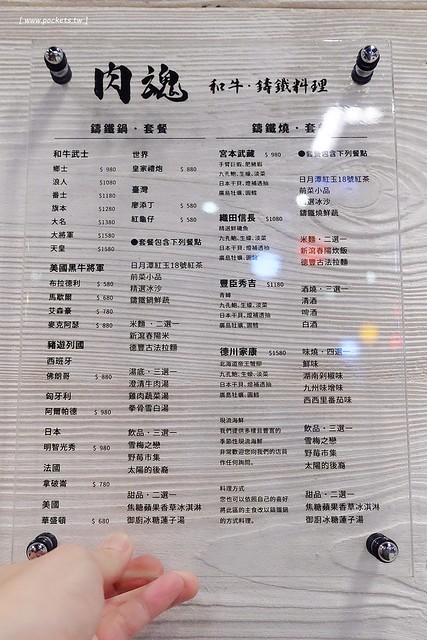 [ www.pockets.tw ]
肉魂 和牛·鑄鐵料理
鑄鐵鍋·套餐
和牛武士
鄉士 $ 980
浪人 $1080
番士 $1180
旗本 $1280
大名 $1380
大將軍 $1580
天皇 $1580
美國黑牛將軍
布拉德利 $ 580
馬歇爾 $ 680
艾森豪 $ 780
麥克阿瑟 $ 880
豬遊列國
西班牙
佛朗哥 $ 880
匈牙利
阿爾帕德 $ 980
日本
明智光秀 $ 980
法國
拿破崙 $ 780
美國
華盛頓 $ 680
世界
皇家禮炮 $ 880
臺灣
廖添丁 $ 580
紅龜仔 $ 580
●套餐包含下列餐點
日月潭紅玉18號紅茶
前菜小品
精選冰沙
鑄鐵鍋鮮蔬
米麵·二選一
新瀉春陽米
德豐古法拉麵
湯底·三選一
澄清牛肉湯
雞肉蔬菜湯
拳骨雪白湯
飲品·三選一
雪梅之戀
野莓市集
太陽的後裔
甜品·二選一
焦糖蘋果香草冰淇淋
御廚冰糖蓮子湯
鑄鐵燒·套
宮本武藏 $ 980
九孔鮑、生蠔、淡菜
日本干貝、煙桶透抽
廣島牡蠣、圓鱈
織田信長 $1080
九孔鮑、生蠔、淡菜
日本干貝、煙桶透抽
廣島牡蠣、圓
豐臣秀吉 $1180
九孔鮑、生蠔、淡菜
日本干貝、煙桶透抽
廣島牡蠣、圓鱈
德川家康 $1580
北海道帝王蟹腳
九孔鮑、生蠔、淡菜
日本干貝、煙桶透抽
廣島牡蠣、圓鱈
現流海鮮
我們提供多樣且豐富的
季節性現流海鮮
非常歡迎您向我們的店員
作任何詢問。
料理方式
您也可以依照自己的喜好
將此區的主食改以鑄鐵鍋
的方式料理。
包含下列餐點
日月潭紅玉18號紅茶
前菜小品
選冰沙
鑄鐵燒鮮蔬
米麵·二選一
新瀉春陽炊飯
德豐古法拉麵
酒燒·三選一
清酒
啤酒
白酒
味燒·四選
鮮味
湖南剁椒味
九州味增味
西西里番茄味
飲品·三選一
雪梅之戀
野莓市集
太陽的後裔
甜品·二選一
焦糖蘋果香草冰淇淋
御廚冰糖蓮子湯